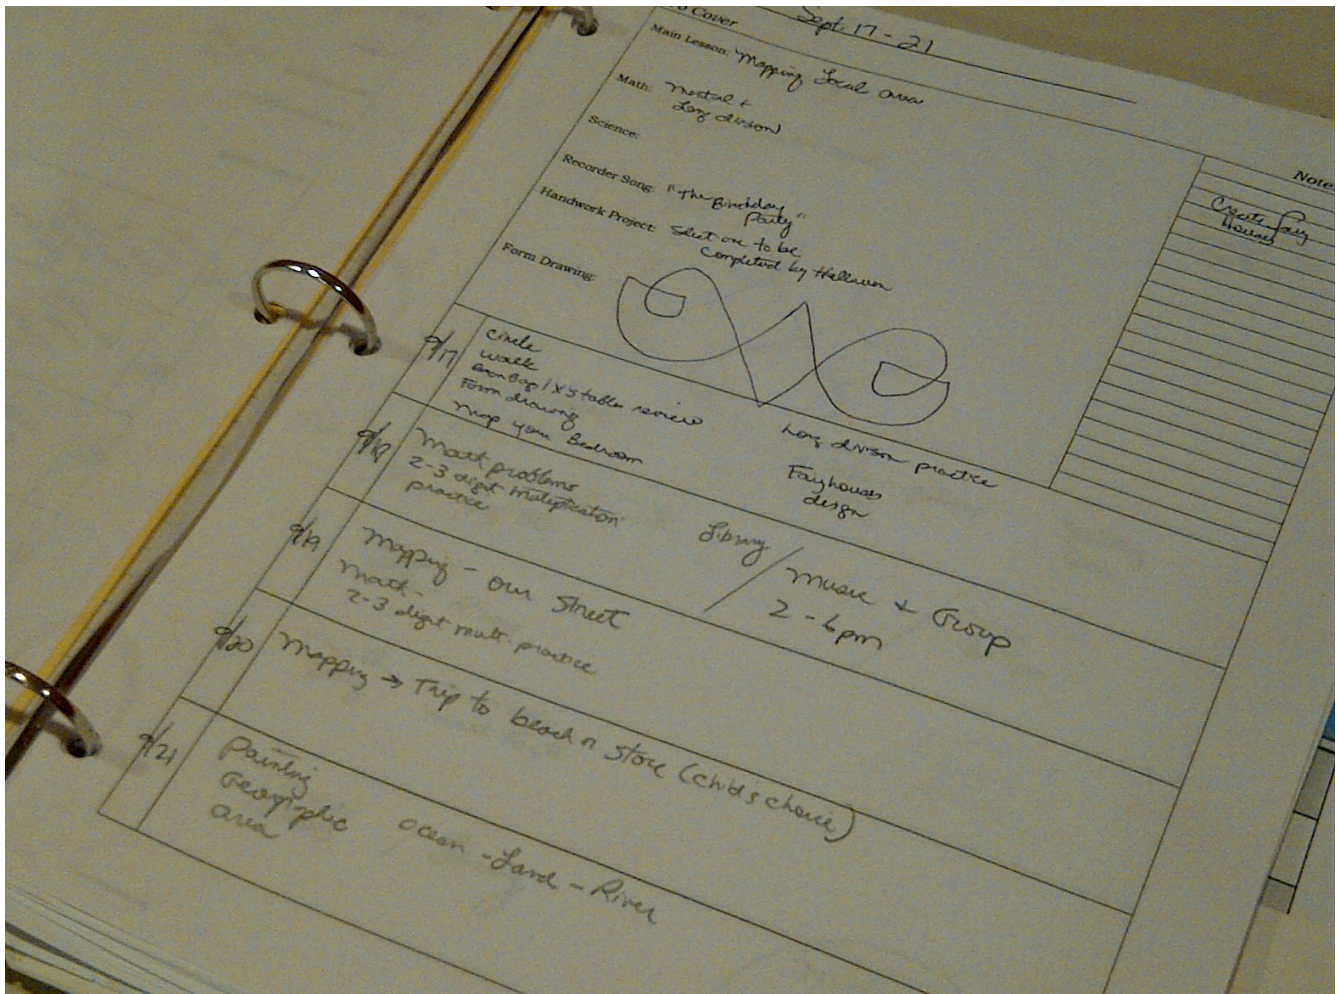 o Cover
Sept. 17 - 21
Main Lesson: Mapping Local area
Math: Mental +
Long divison
Science:
Recorder Song: "The Birthday
Party"
Handwork Project: Select one to be
completed by Halloween
Form Drawing:
Note
Create Fairy
Houses
9/17
Circle
walk
Bean Bag / X 5 tables review
Form drawing
Map your Bedroom
Long divison practice
Fairyhouses
design
9/18
Math problems
2-3 digit multiplication
practice
Library / Music + Group
2 - 6 pm
9/19
Mapping - our Street
Math-
2-3 digit mult. practice
9/20
Mapping → Trip to beach or Store (childs choice)
9/21
Painting
Geographic
area
ocean - Land - River